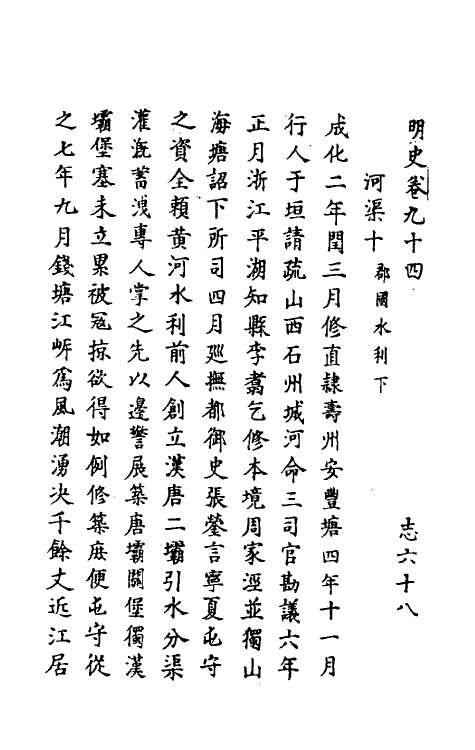 明史卷九十四　志六十八
河渠十　郡國水利下
成化二年閏三月修直隸壽州安豐塘四年十一月
行人于垣請疏山西石州城河命三司官勘議六年
正月浙江平湖知縣李翥乞修本境周家涇並獨山
海塘詔下所司四月廵撫都御史張鎣言寧夏屯守
之資全賴黄河水利前人創立漢唐二壩引水分渠
灌漑蓄洩專人掌之先以邊警展築唐壩關堡獨漢
壩堡塞未立累被冦掠欲得如例修築庶便屯守從
之七年九月錢塘江岍爲風潮湧决千餘丈近江居